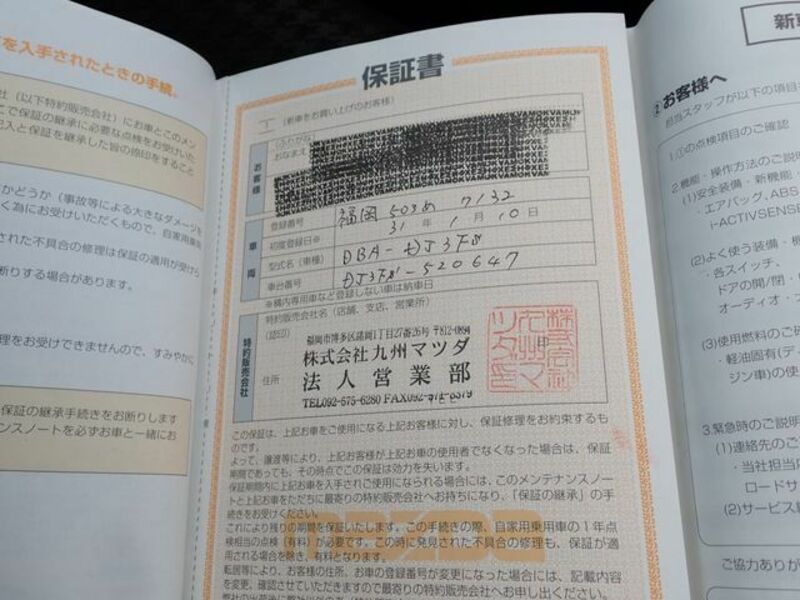 を入手されたときの手続。
社（以下特約販売会社）にお車とこのメン
こで保証の継承に必要な点検をお受けいた
記入と保証を継承した旨の捺印をすること
かどうか（事故等による大きなダメージを
く為にお受けいただくもので、自家用乗用
された不具合の修理は保証の適用が受けら
断りする場合があります。
理をお受けできませんので、すみやかに
保証の継承手続きをお断りします
ナンスノートを必ずお車と一緒にお
保証書
（新車をお買い上げのお客様）
お客様
（ふりがな）
おなまえ
車両
登録番号
福岡 503め 7132
初度登録日※
31 年 1 月 10 日
型式名（車種）
DBA-DJ3FS
車台番号
DJ3FS-520647
※構内専用車など登録しない車は納車日
特約販売会社
特約販売会社名（店舗、支店、営業所）
（認印）
住所
福岡市博多区諸岡1丁目27番26号 〒812-0894
株式会社九州マツダ
法人営業部
TEL092-575-6280 FAX092-571-5379
株式会社
九州マ
ツダ印
この保証は、上記お車をご使用になる上記お客様に対し、保証修理をお約束するも
のです。
よって、譲渡等により、上記お客様が上記お車の使用者でなくなった場合は、保証
期間であっても、その時点でこの保証は効力を失います。
保証期間内に上記お車を入手されご使用になられる場合には、このメンテナンスノー
トと上記お車をただちに最寄りの特約販売会社へお持ちになり、「保証の継承」の手
続きをお受けください。
これにより残りの期間を保証いたします。この手続きの際、自家用乗用車の1年点
検相当の点検（有料）が必要です。この時に発見された不具合の修理も、保証が適
用される場合を除き、有料となります。
転居等により、お客様の住所、お車の登録番号が変更になった場合には、記載内容
を変更、確認させていただきますので最寄りの特約販売会社へお申し出ください。
新車
② お客様へ
担当スタッフが以下の項目
1.①の点検項目のご確認
2.機能・操作方法のご説明
(1)安全装備・新機能・
・エアバッグ、ABS
i-ACTIVSENSE
(2)よく使う装備・機
・各スイッチ、
ドアの開/閉・
オーディオ・
(3)使用燃料のご確
・軽油固有(デ
ジン車)の使
3.緊急時のご説明
(1)連絡先のご
・当社担当店
ロードサ
(2)サービス
ご協力ありが